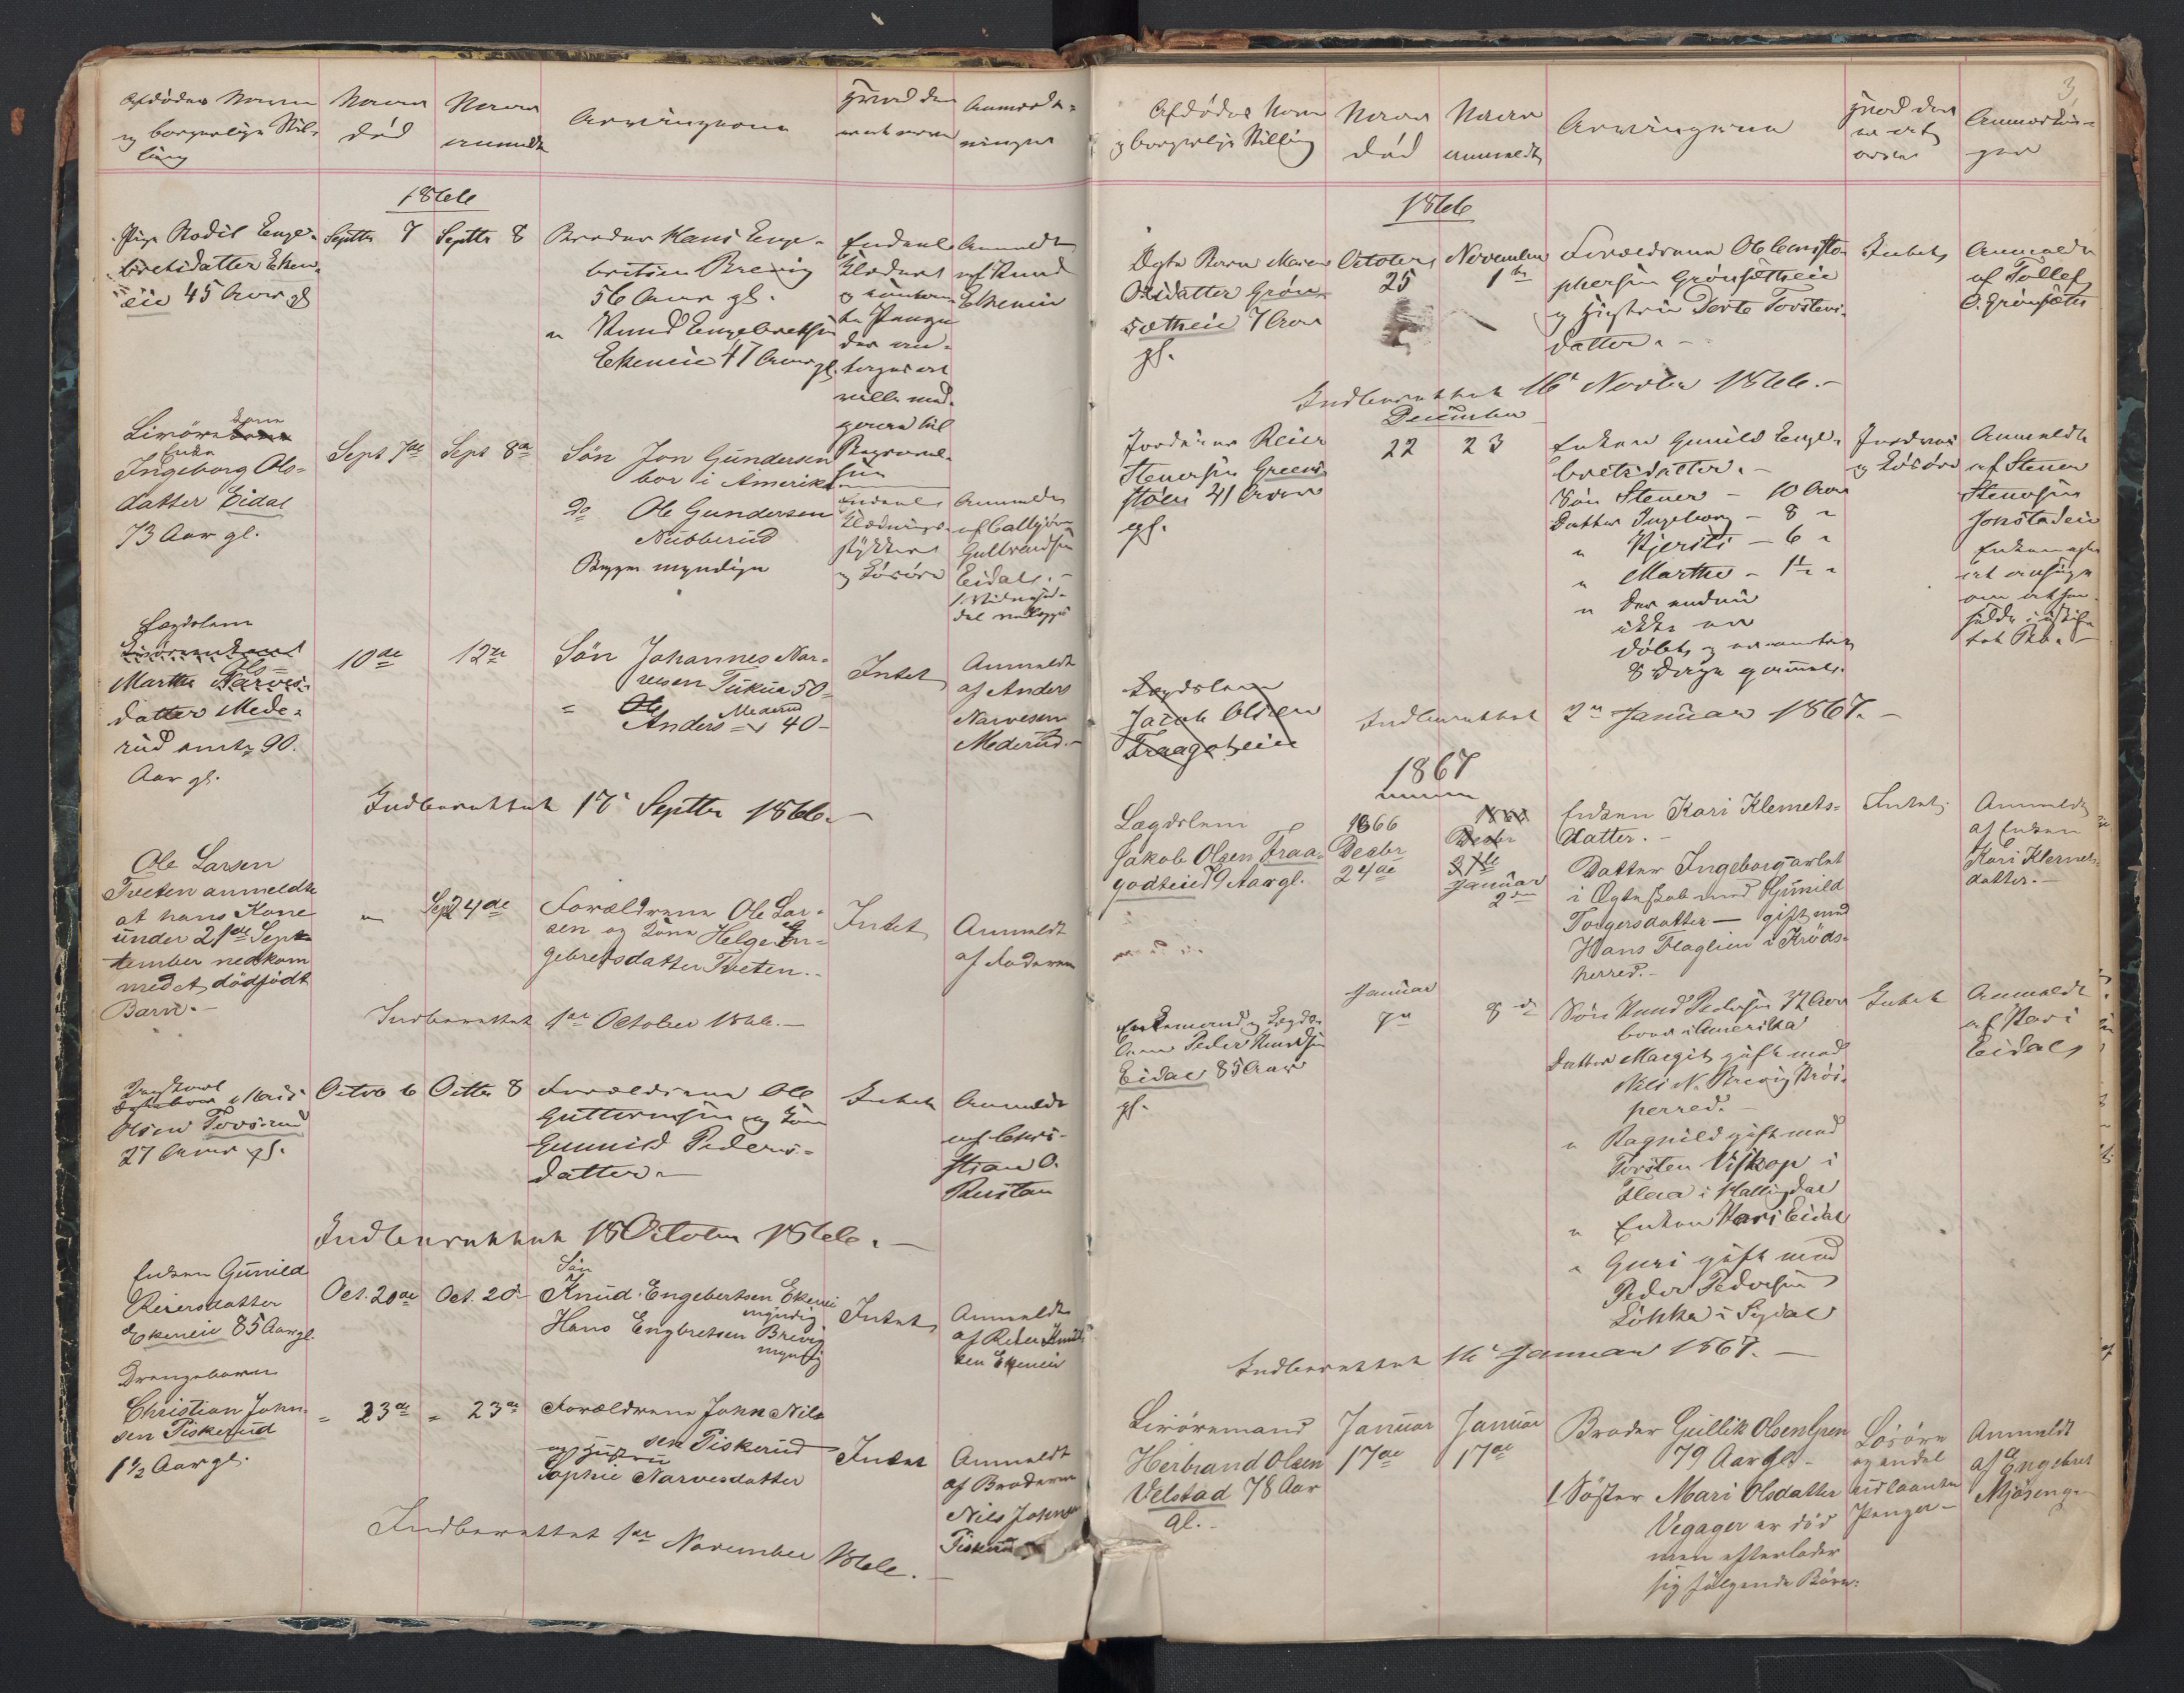 Afdødes Navn
og borgerlige Stil-
ling
Naar
død
Naar
anmeldt
Arvingerne
Anmærk-
ninger
1866
Pige Bodil Enge-
bretsdatter Eken-
eie 45 Aar gl
Septbr 7
Septbr 8
Broder Hans Enge-
bretsen Brevig
56 Aar gl.
" Knud Engebretsen
Ekeneie 47 Aar gl.
Endeel
Klæder
Penge
Anmeldt
af Knud
Ekeneie
Livøre
Enke
Ingeborg Ols-
datter Eidal
73 Aar gl.
Sept 7de
Sept 8de
Søn Jon Gundersen
bor i Amerika
do Ole Gundersen
Nubberud
Begge myndige
Endeel
Klædnings-
stykker
og Løsøre
Anmeldt
Eidal.-
Lægdslem
Ols-
Marthe Narves-
datter Mede-
rud omtr 90.
Aar gl.
10de
12te
Søn Johannes Nar-
vesen Tukua 50-
" Ole Mederud
Anders = 40-
Intet
Anmeldt
af Anders
Narvesen
Mederud.-
Indberettet 17de Septbr 1866.-
Ole Larsen
Tveten anmeldte
at hans Kone
under 21de Sep-
tember nedkom
med et dødfødt
Barn.-
"
Sept 24de
Forældrene Ole Lar-
sen og Kone Helge En-
gebretsdatter Tveten.-
Intet
Anmeldt
af Faderen
Indberettet 1ste October 1866.-
Olsen Tovsrud
27 Aar gl.
Octbr 6
Octbr 8
Forældrene Ole
Guttormsen og Kone
Gunnild Peders-
datter.-
Intet
Anmeldt
af Chri-
stian O.
Rustan
Indberettet 18 October 1866.-
Enken Gunild
Reiersdatter
Ekeneie 85 Aar gl.
Oct. 20de
Oct. 20de
Søn
Knud Engebertsen Ekeneie
myndig
Hans Engbretsen Brevig
myndig
Intet
Anmeldt
af Reier Knud-
sen Ekeneie
Drengebarn
Christian John-
sen Piskerud
1 1/2 Aar gl.
" 23de
" 23de
Forældrene John Nils-
sen Piskerud
og Hustru
Sophie Narvesdatter
Intet
Anmeldt
af Broderen
Nils Johnsen
Piskerud
Indberettet 1ste November 1866.-
3
Afdødes Navn
og borgerlige Stilling
Naar
død
Naar
anmeldt
Arvingerne
Anmærknin-
ger
1866
Ægte Barn Maren
Olsdatter Grøn-
sætheie 7 Aar
gl.
October
25
November
1ste
Forældrene Ole Christo-
phersen Grønsætheie
og Hustru Dorte Torstens-
datter.-
Intet
Anmeldt
af Tollef
O. Grønsæth
Indberettet 16de Novbr 1866.-
December
Reier
Stenersen Greens-
støen 41 Aar
gl.
22
23
Enken Gunild Enge-
bretsdatter.-
Søn Stener - 10 Aar
Datter Ingeborg - 8 "
" Kjersti - 6 "
" Marthe - 1 1/2 "
" der endnu
ikke er
døbt og er omtrent
8 Dage gammel.
Jordvei
og Løsøre
Anmeldt
af Stener
Stenersen
Jonstadeie
Lægdslem
Jacob Olsen
Fraagoteie
Indberettet 2den Januar 1867.-
1867
Lægdslem
Jakob Olsen Fraa-
godteie 79 Aar gl.
1866
Decbr
24de
1866
Decbr
31te
Januar
2den
Enken Kari Klemets-
datter.-
Datter Ingeborg avlet
i Ægteskab med Gunild
Torgersdatter - gift med
Hans Flaglien i Kröds-
herred.-
Intet
Anmeldt
af Enken
Kari Klemets-
datter.-
Enkemand og Lægds-
lem Peder Knudsen
Eidal 85 Aar
gl.
Januar
7de
8de
Søn Knud Pedersen 72 Aar
boer i Amerika
Datter Margit gift med
Nils N. Brevig Krøds-
herred.-
" Ragnild gift med
Torsten Viskop i
Flaa i Hallingdal
" Enken Kari Eidal
" Guri gift med
Peder Pedersen
Løkka i Sigdal
Intet
Anmeldt
af Kari
Eidal
Indberettet 16de Januar 1867.-
Livøremand
Herbrand Olsen
Velstad 78 Aar
gl.-
Januar
17de
Januar
17de
Broder Gullik Olsen Green
79 Aar gl.-
1 Søster Mari Olsdatter
Vegager er død
men efterlader
sig følgende Børn:
Løsøre
og endel
udlaante
Penger-
Anmeldt
af Engebret
Mjøseng